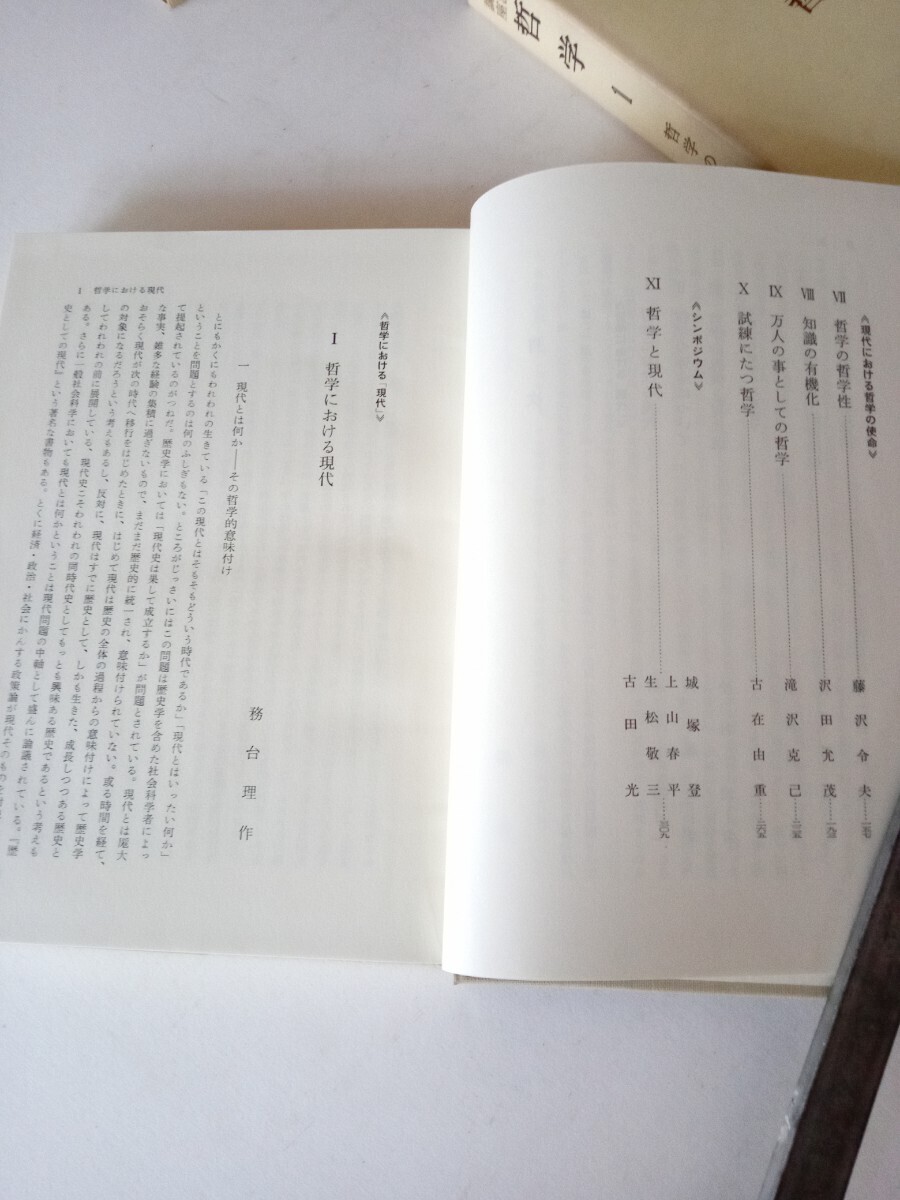 哲学 1
哲学の
《現代における哲学の使命》
Ⅶ 哲学の哲学性 藤沢令夫
Ⅷ 知識の有機化 沢田允茂
Ⅸ 万人の事としての哲学 滝沢克己
Ⅹ 試練にたつ哲学 古在由重
《シンポジウム》
Ⅺ 哲学と現代
城塚登
上山春平
生松敬三
古田光
1 哲学における現代
《哲学における「現代」》
Ⅰ 哲学における現代
務台理作
一 現代とは何か――その哲学的意味付け
とにもかくにもわれわれの生きている「この現代とはそもそもどういう時代であるか」「現代とはいったい何か」
ということを問題とするのは何のふしぎもない。ところがじっさいにはこの問題は歴史学を含めた社会科学者によっ
て提起されているのがつねだ。歴史学においては「現代史は果して成立するか」が問題とされている。現代とは尨大
な事実、雑多な経験の集積に過ぎないもので、まだまだ歴史的に統一され、意味付けられていない。或る時間を経て、
おそらく現代が次の時代へ移行をはじめたときに、はじめて現代は歴史の全体の過程からの意味付けによって歴史学
の対象になるだろうという考えもあるし、反対に、現代はすでに歴史として、しかも生きた、成長しつつある歴史と
してわれわれの前に展開している、現代史こそわれわれの同時代史としてもっとも興味ある歴史であるという考えも
ある。さらに一般社会科学においても現代とは何かということは現代問題の中軸として盛んに論議されている。『歴
史としての現代』という著名な書物もある。とくに経済・政治・社会にかんする政策論が現代そのものを